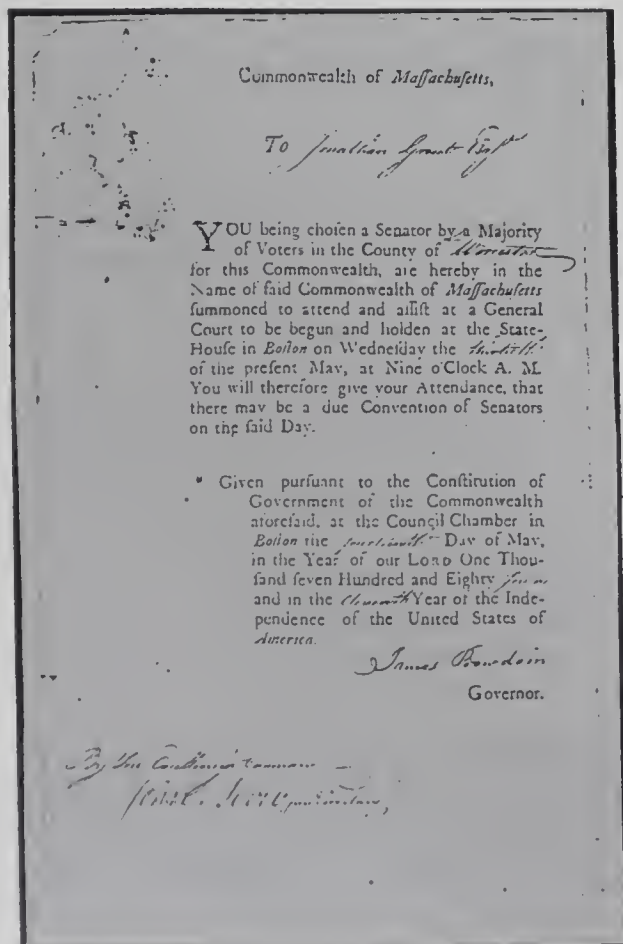 Commonwealth of Maſſachuſetts,
To Jonathan Grout Esqr
YOU being choſen a Senator by a Majority
of Voters in the County of Worcester
for this Commonwealth, are hereby in the
Name of ſaid Commonwealth of Maſſachuſetts
ſummoned to attend and aſſiſt at a General
Court to be begun and holden at the State-
Houſe in Boſton on Wedneſday the thirtieth
of the preſent May, at Nine o'Clock A. M.
You will therefore give your Attendance, that
there may be a due Convention of Senators
on the ſaid Day.
Given purſuant to the Conſtitution of
Government of the Commonwealth
aforeſaid, at the Council Chamber in
Boſton the Day of May,
in the Year of our LORD One Thou-
ſand ſeven Hundred and Eighty ſeven
and in the eleventh Year of the Inde-
pendence of the United States of
America.
James Bowdoin
Governor.
By His Excellencies command